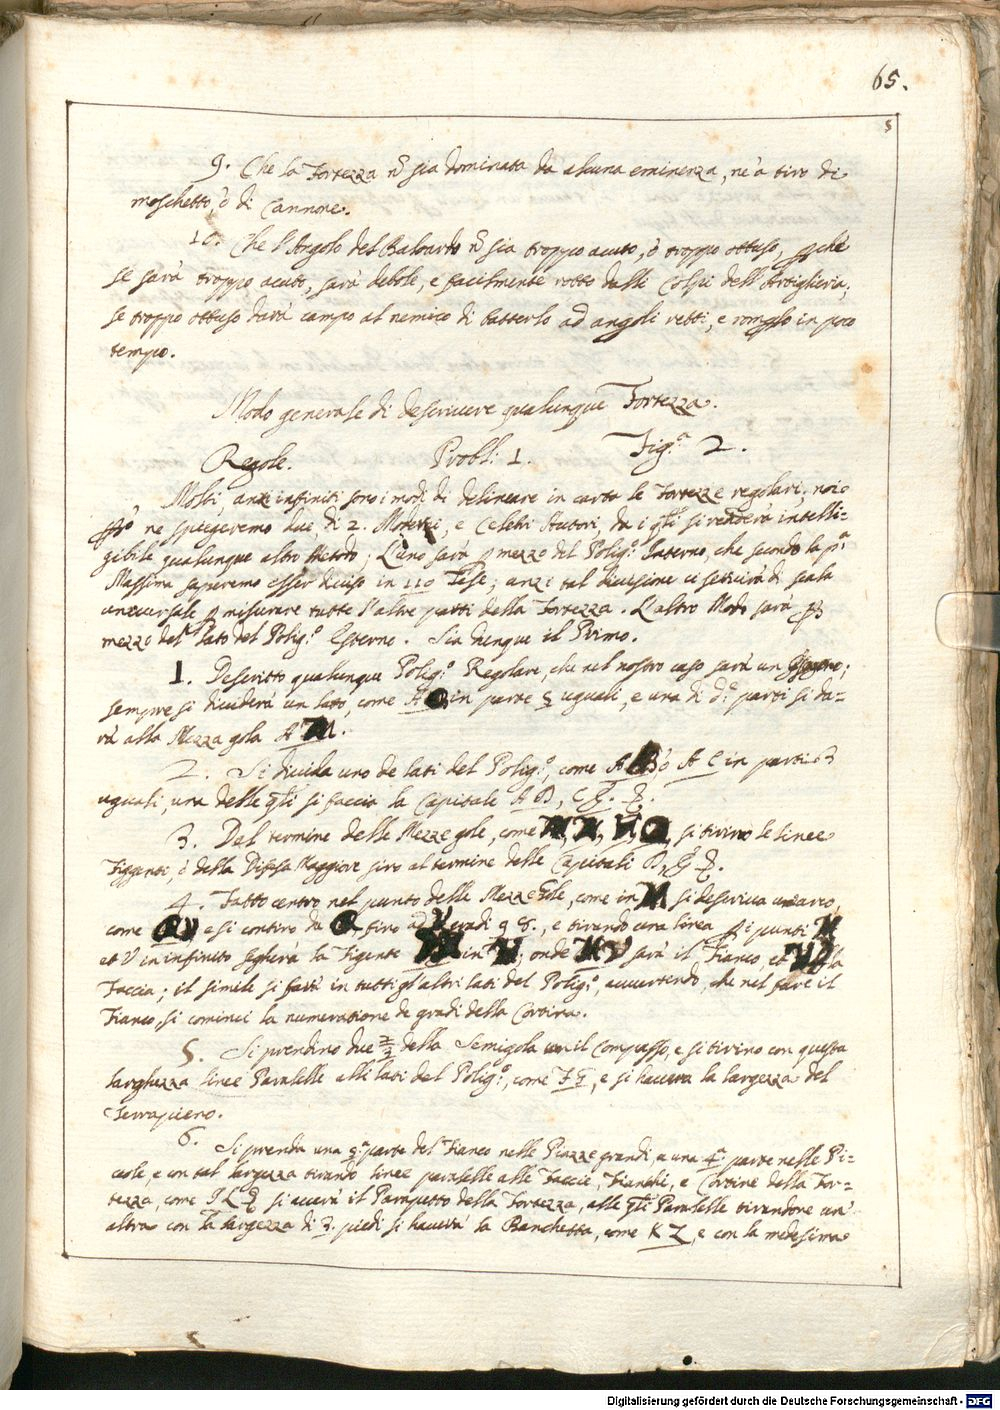 65.
5
9. Che la Fortezza nõ sia dominata da alcuna eminenza, ne a tiro di
moschetto, ò di Cannone.
10. Che l'Angolo del Baloardo nõ sia troppo acuto, ò troppo ottuso, pchè
se sarà troppo acuto, sarà debole, e facilmente rotto dalli Colpi dell'Artiglieria,
se troppo ottuso darà campo al nemico di batterlo ad angoli retti, e romplo in poco
tempo.
Modo generale di descrivere qualunque Fortezza.
Regole. Probl: 1. Fig.ª 2.
Molti, anzi infiniti sono i modi di delineare in carta le Fortezze regolari, noi
pò ne spiegeremo due, di 2. Moderni, e Celebri Autori, da i qli si renderà intelli-
gibile qualunque altro Metodo; L'uno sarà p mezzo del Polig.º Interno, che secondo la pª
Massima sapremo esser diviso in 110 Tese; anzi tal divisione ci servirà di scala
universale p misurare tutte l'altre parti della Fortezza. L'altro Modo sarà p
mezzo del lato del Polig.º Esterno. Sia dunque il Primo.
1. Descritto qualunque Polig.º Regolare, che nel nostro caso sarà un Esagono;
sempre si dividerà un lato, come A in parte 5 uguali, e una di d.e parti si da-
rà alla Mezza gola A M.
2. Si divida uno de lati del Polig.º, come A B ò A C in parti 3
uguali, una delle qli si faccia la Capitale A D, C
3. Dal termine delle Mezze gole, come si tirino le linee
Figgenti, ò della Difesa Maggiore sino al termine delle Capitali D,
4. Fatto centro nel punto delle Mezze Gole, come in M si descriva un arco,
come e si contino da fino ad V gradi 98., e tirando una linea p i punti M
et V in infinito segherà la Figente in onde M V sarà il Fianco, et la
Faccia; il simile si farà in tutti gl'altri lati del Polig.º, avvertendo, che nel fare il
Fianco, si cominci la numeratione de gradi della Cortina.
5. Si prendino due 2/3 della Semigola con il Compasso, e si tirino con questa
larghezza linee Paralelle alli lati del Polig.º, come F G, e si haverà la largezza del
Terrapieno.
6. Si prenda una 9.ª parte del Fianco nelle Piazze grandi, a una 4.ª parte nelle Pi-
cole, e con tal largezza tirando linee paralelle alle Faccie, Fianchi, e Cortine della For-
tezza, come I L si averà il Parapetto della Fortezza, alle qli Paralelle tirandone un'
altra con la largezza di 3. piedi si haverà la Banchetta, come K Z, e con la medesima
Digitalisierung gefördert durch die Deutsche Forschungsgemeinschaft - DFG